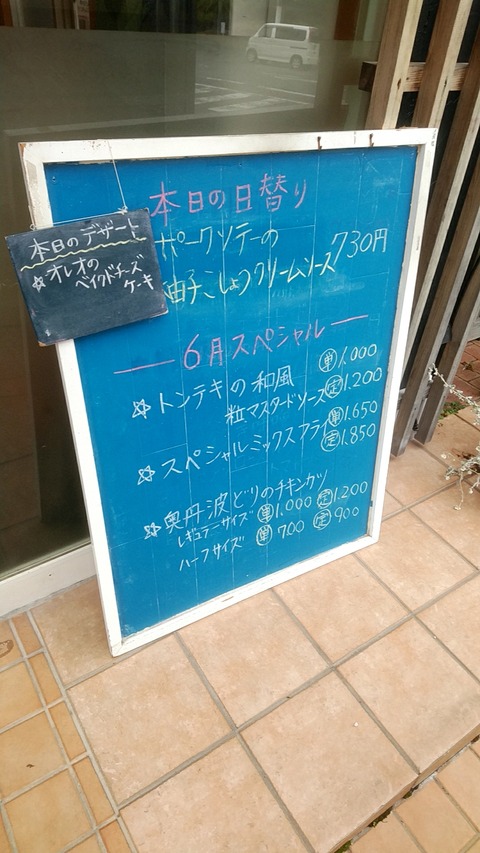 本日の日替り
ポークソテーの
由子こしょうクリームソース 730円
本日のデザート
☆オレオの
ベイクドチーズ
ケーキ
6月スペシャル
☆トンテキの和風 単1.000
粒マスタードソース 定1.200
☆スペシャルミックスフライ 単1.650
定1.850
☆奥丹波どりのチキンカツ
レギュラーサイズ 単1.000 定1.200
ハーフサイズ 単700 定900